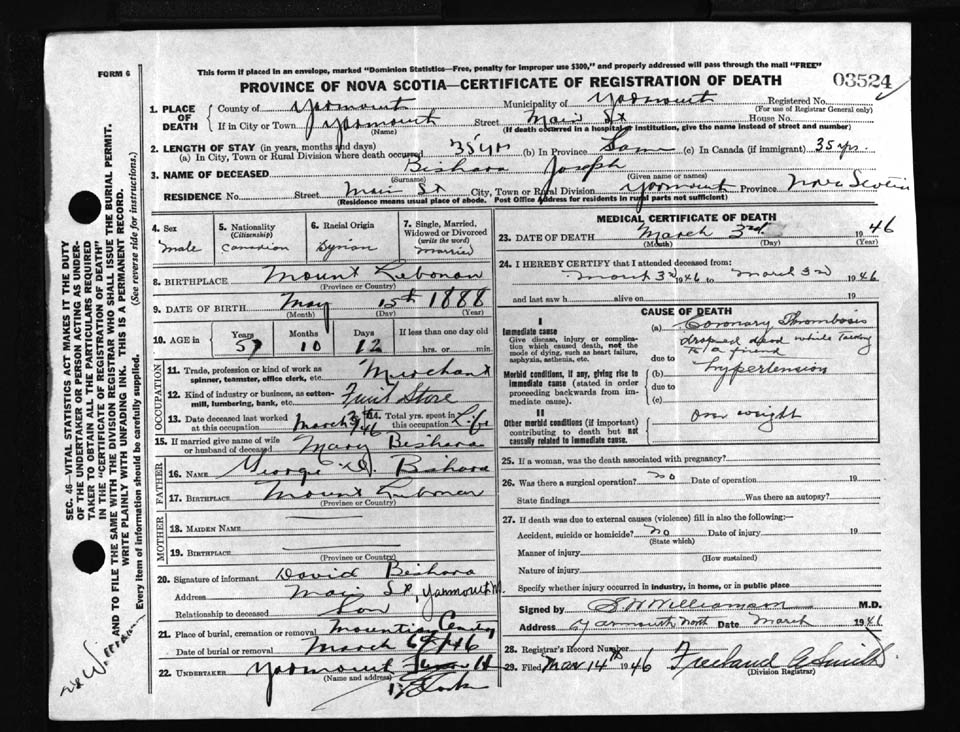 This form if placed in an envelope, marked "Dominion Statistics—Free, penalty for improper use $300," and properly addressed will pass through the mail "FREE"
FORM 6
PROVINCE OF NOVA SCOTIA—CERTIFICATE OF REGISTRATION OF DEATH
03524
1. PLACE OF DEATH
County of Yarmouth Municipality of Yarmouth Registered No.
(For use of Registrar General only)
If in City or Town Yarmouth Street Main St House No.
(Name) (If death occurred in a hospital or institution, give the name instead of street and number)
2. LENGTH OF STAY (in years, months and days)
(a) In City, Town or Rural Division where death occurred 35 yrs (b) In Province Same (c) In Canada (if immigrant) 35 yrs.
3. NAME OF DECEASED Bishara Joseph
(Surname) (Given name or names)
RESIDENCE No. Street Main St City, Town or Rural Division Yarmouth Province Nova Scotia
(Residence means usual place of abode. Post Office Address for residents in rural parts not sufficient)
4. Sex
Male
5. Nationality
(Citizenship)
Canadian
6. Racial Origin
Syrian
7. Single, Married,
Widowed or Divorced
(write the word)
Married
8. BIRTHPLACE Mount Lebanon
(Province or Country)
9. DATE OF BIRTH May 15th 1888
(Month) (Day) (Year)
10. AGE in
Years Months Days If less than one day old
57 10 12 hrs. or min.
OCCUPATION
11. Trade, profession or kind of work as
spinner, teamster, office clerk, etc. Merchant
12. Kind of industry or business, as cotton-
mill, lumbering, bank, etc. Fruit Store
13. Date deceased last worked at this occupation March 3rd 46
14. Total yrs. spent in this occupation Life
15. If married give name of wife
or husband of deceased Mary Bishara
FATHER
16. NAME George D. Bishara
17. BIRTHPLACE Mount Lebanon
(Province or Country)
MOTHER
18. MAIDEN NAME
19. BIRTHPLACE
(Province or Country)
20. Signature of informant David Bishara
Address Main St, Yarmouth
Relationship to deceased Son
21. Place of burial, cremation or removal Mountain Cemetery
Date of burial or removal March 6th/46
22. UNDERTAKER Yarmouth
(Name and address)
MEDICAL CERTIFICATE OF DEATH
23. DATE OF DEATH March 3rd 1946
(Month) (Day) (Year)
24. I HEREBY CERTIFY that I attended deceased from:
March 3rd 1946 to March 3rd 1946
and last saw h alive on 19
CAUSE OF DEATH
I
Immediate cause
Give disease, injury or complica-
tion which caused death, not the
mode of dying, such as heart failure,
asphyxia, asthenia, etc.
(a) Coronary Thrombosis
dropped dead while talking
to a friend
due to
Morbid conditions, if any, giving rise to
immediate cause (stated in order
proceeding backwards from im-
mediate cause).
(b) Hypertension
due to
(c)
II
Other morbid conditions (if important)
contributing to death but not
causally related to immediate cause.
Over weight
25. If a woman, was the death associated with pregnancy?
26. Was there a surgical operation? no Date of operation 19
State findings Was there an autopsy?
27. If death was due to external causes (violence) fill in also the following:—
Accident, suicide or homicide? no Date of injury 19
(State which)
Manner of injury
(How sustained)
Nature of injury
Specify whether injury occurred in industry, in home, or in public place
Signed by S W Williamson M.D.
Address Yarmouth North Date March 1946
28. Registrar's Record Number
29. Filed Mar 14th 1946 Freeland E Smith
(Division Registrar)
SEC. 46—VITAL STATISTICS ACT MAKES IT THE DUTY
OF THE UNDERTAKER OR PERSON ACTING AS UNDER-
TAKER TO OBTAIN ALL THE PARTICULARS REQUIRED
IN THE "CERTIFICATE OF REGISTRATION OF DEATH"
AND TO FILE THE SAME WITH THE DIVISION REGISTRAR WHO SHALL ISSUE THE BURIAL PERMIT.
WRITE PLAINLY WITH UNFADING INK. THIS IS A PERMANENT RECORD.
Every item of information should be carefully supplied. (See reverse side for instructions.)